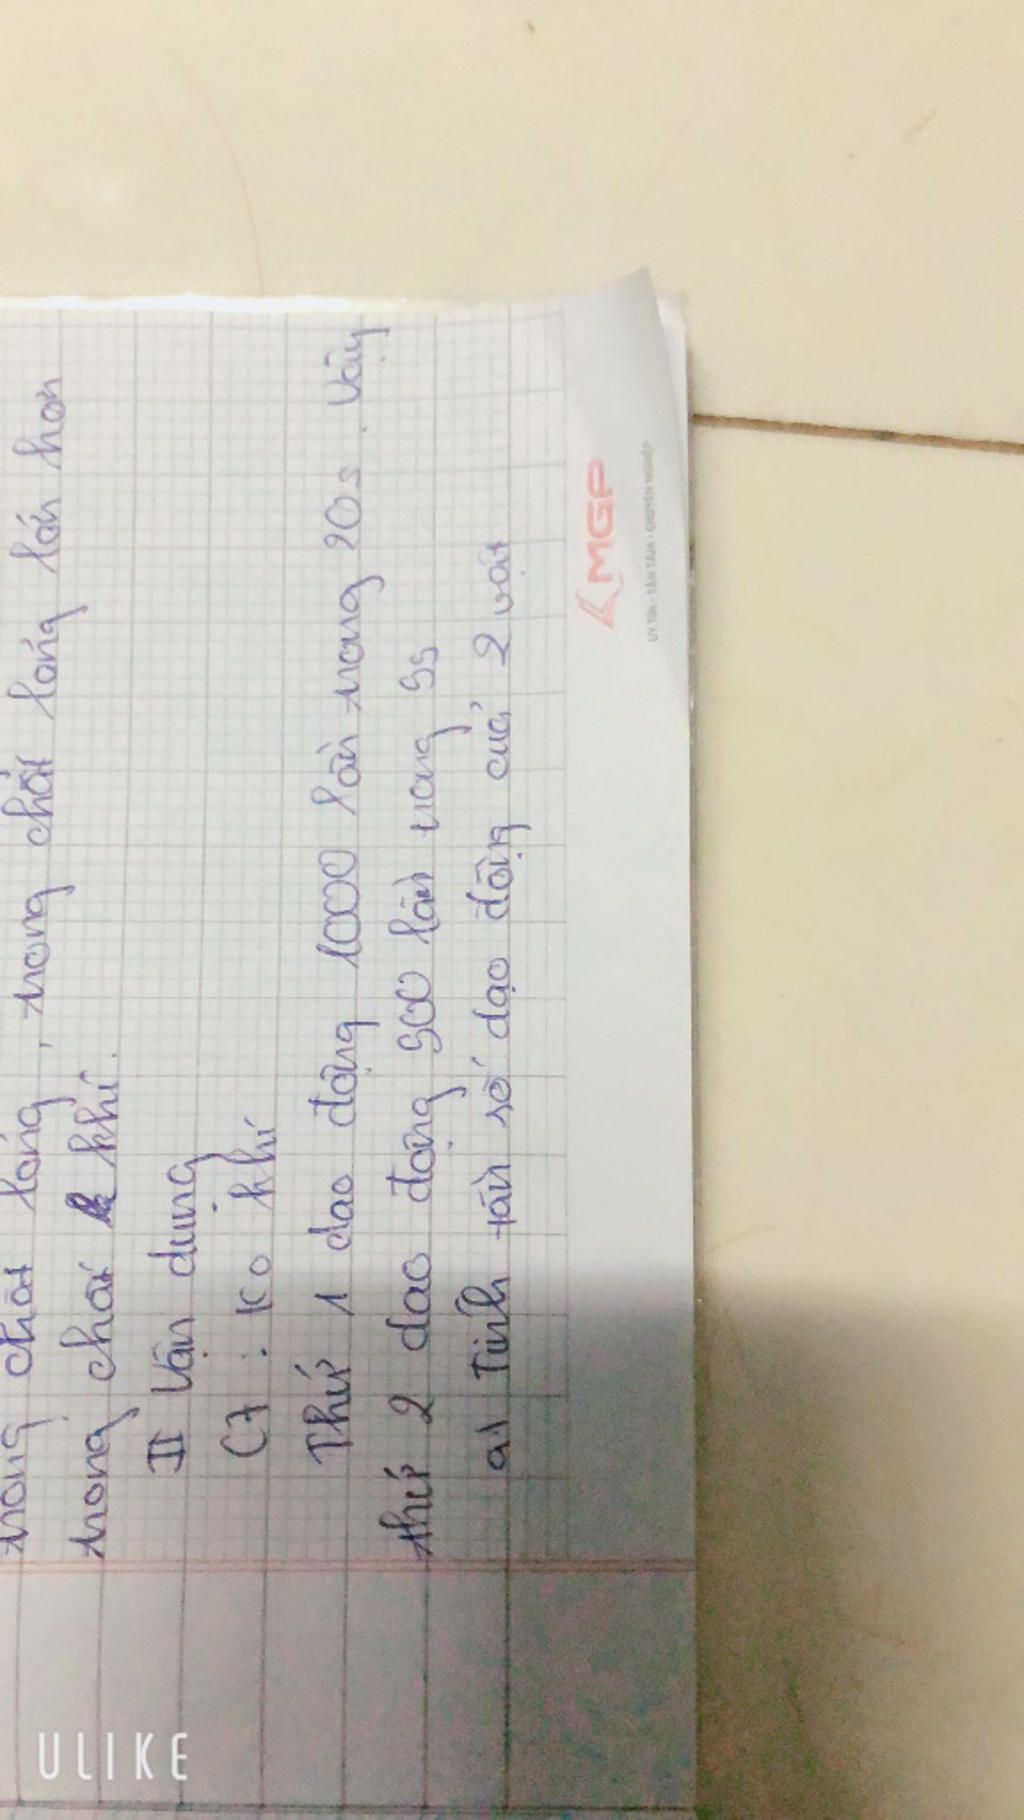 trong chất lỏng, trong chất lỏng lớn hơn
trong chất khí.
II Vận dụng
C7: Ko khí
Thứ 1 dao động 1000 lần trong 20s. Vậy
thứ 2 dao động 900 lần trong 9s
a1 Tính tần số dạo động của 2 vật
MGP
UY TÍN - TẬN TÂM - CHUYÊN NGHIỆP
ULIKE